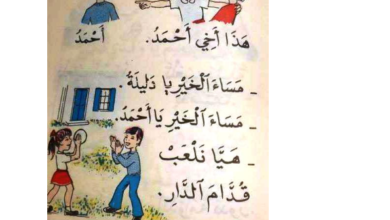 هَذَا أَخِي أَحْمَدُ. أَحْمَدُ
_ مَسَاءَ ٱلْخَيْرِ يَا دَلِيلَةُ.
_ مَسَاءَ ٱلْخَيْرِ يَا أَحْمَدُ.
_ هَيَّا نَلْعَبْ
قُدَّامَ ٱلدَّارِ.